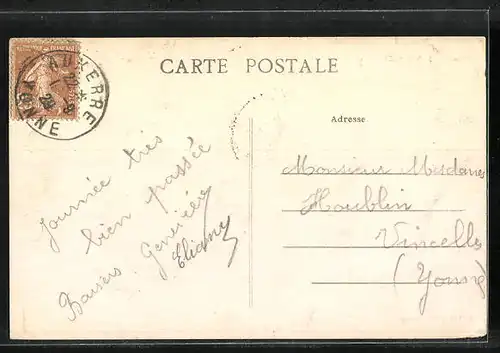 AUXERRE
YONNE
CARTE POSTALE
Adresse
Journée très
bien passée
Baisers Geneviève
Monsieur Mesdames
Houblin
Vincelles
(Yonne)